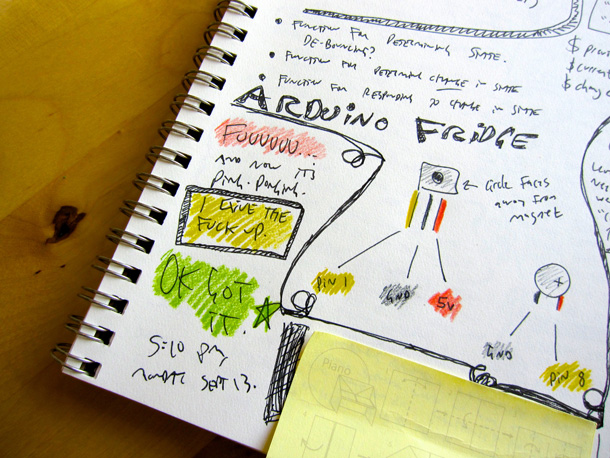 • FUNCTION FOR DETERMINING STATE.
DE-BOUNCING?
• FUNCTION FOR DETERMINING CHANGE IN STATE
• FUNCTION FOR RESPONDING TO CHANGE IN STATE
ARDUINO FRIDGE
FUUUUU...
AND NOW IT'S
PING-PONGING.
I
THE
FUCK UP.
OK GOT
IT.
5:10 PM
SEPT 13.
← Circle Faces
away from
magnet
PIN 1
GND
5V
GND
PIN 8
Piano
$
$ curre
$ chang